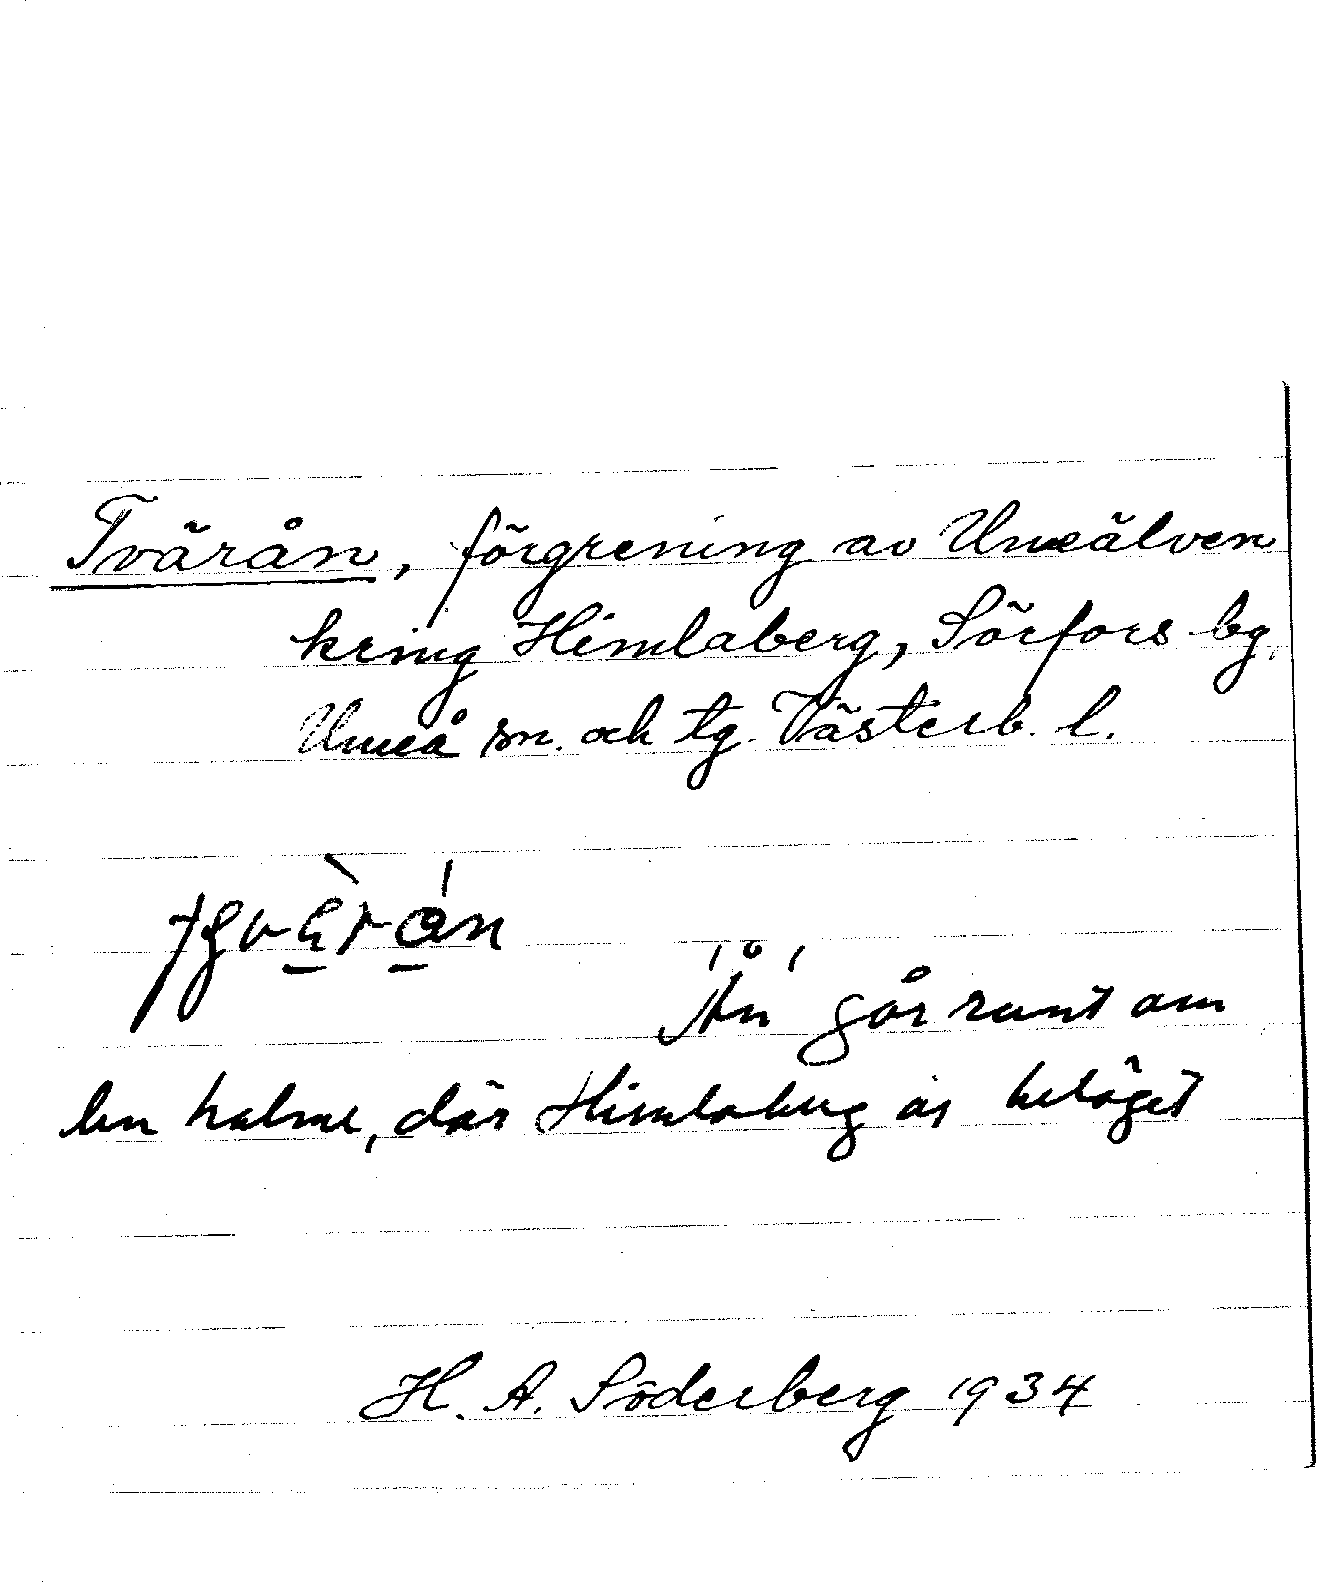 Tvärån, förgrening av Umeälven
kring Himlaberg, Sörfors bg,
Umeå sn. och tg. Västerb. l.
"Ån" går runt om
den holme, där Himlaberg är beläget
H. A. Söderberg 1934